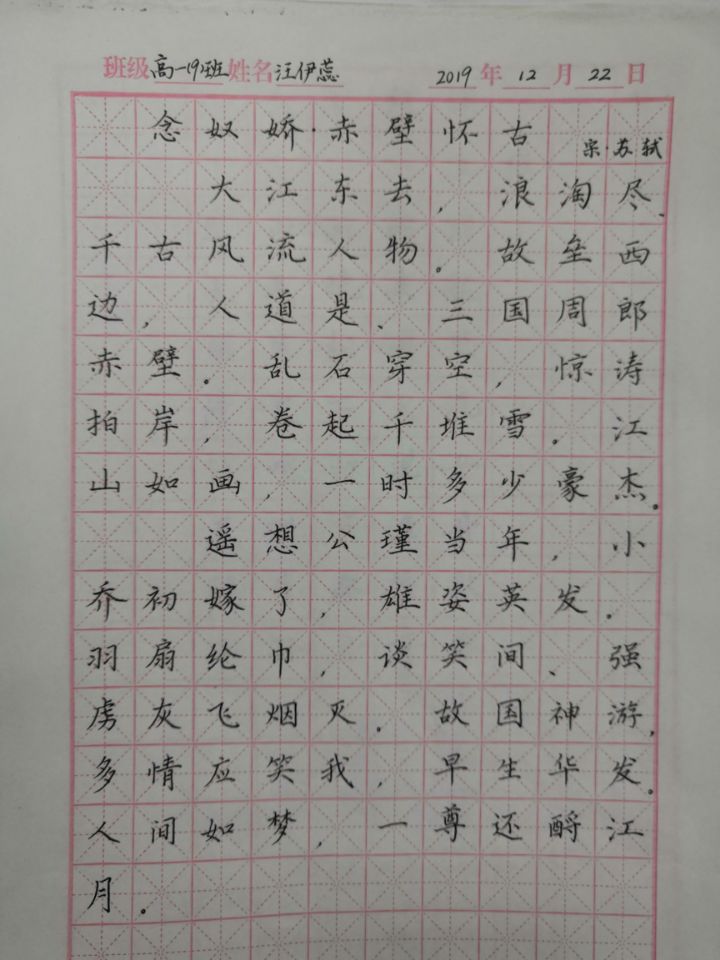 班级高一19班姓名汪伊蕊 2019年12月22日
念奴娇·赤壁怀古
宋·苏轼
大江东去，浪淘尽、
千古风流人物。故垒西
边，人道是、三国周郎
赤壁。乱石穿空，惊涛
拍岸，卷起千堆雪。江
山如画，一时多少豪杰。
遥想公瑾当年，小
乔初嫁了，雄姿英发。
羽扇纶巾，谈笑间、强
虏灰飞烟灭。故国神游，
多情应笑我，早生华发。
人间如梦，一尊还酹江
月。